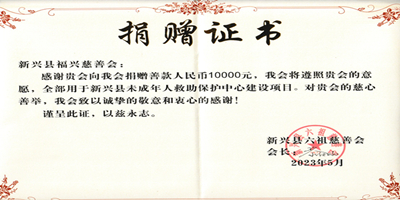 捐赠证书
新兴县福兴慈善会：
感谢贵会向我会捐赠善款人民币10000元，我会将遵照贵会的意
愿，全部用于新兴县未成年人救助保护中心建设项目。对贵会的慈心
善举，我会致以诚挚的敬意和衷心的感谢！
谨呈此证，以兹永志。
新兴县六祖慈善会
会长：
2023年5月